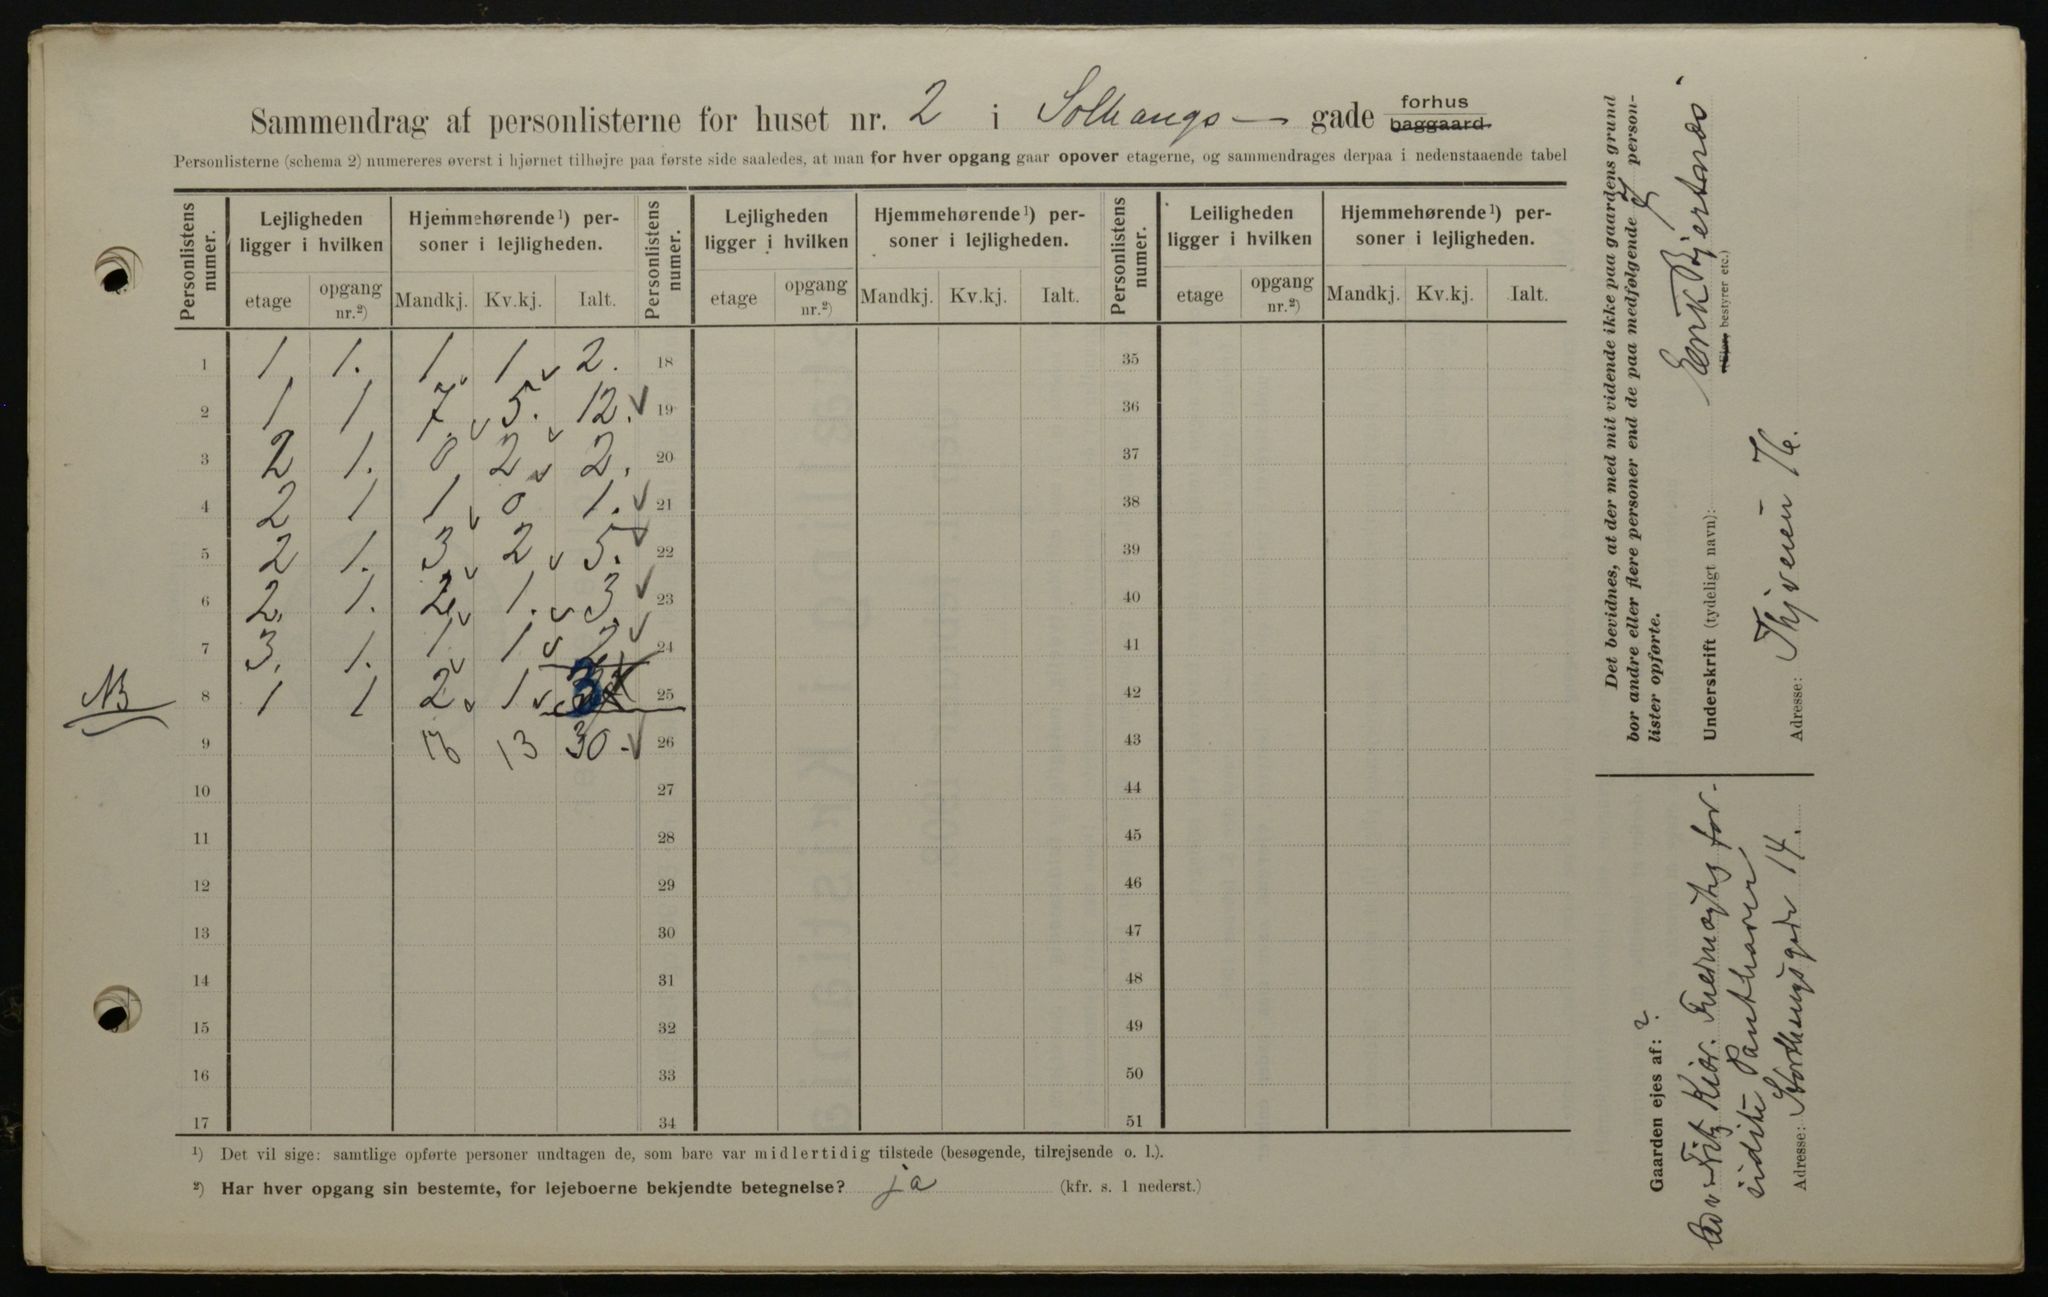 Sammendrag af personlisterne for huset nr. 2 i Solhaugs — gade forhus baggaard.
Personlisterne (schema 2) numereres øverst i hjørnet tilhøjre paa første side saaledes, at man for hver opgang gaar opover etagerne, og sammendrages derpaa i nedenstaaende tabel
Personlistens numer. | Lejligheden ligger i hvilken | Hjemmehørende¹) personer i lejligheden. | Personlistens numer. | Lejligheden ligger i hvilken | Hjemmehørende¹) personer i lejligheden. | Personlistens numer. | Leiligheden ligger i hvilken | Hjemmehørende¹) personer i lejligheden.
etage | opgang nr.²) | Mandkj. | Kv.kj. | Ialt. | etage | opgang nr.²) | Mandkj. | Kv.kj. | Ialt. | etage | opgang nr.²) | Mandkj. | Kv.kj. | Ialt.
1 1 1. 1. 1 2. 18 35
2 1 1 7. 5. 12. 19 36
3 2 1. 0 2 2. 20 37
4 2 1 1 0 1. 21 38
5 2 1. 3 2 5. 22 39
6 2. 1. 2 1. 3 23 40
7 3. 1. 1 1 2 24 41
NB 8 1 1 2 1 3 25 42
9 13 30 26 43
10 27 44
11 28 45
12 29 46
13 30 47
14 31 48
15 32 49
16 33 50
17 34 51
¹) Det vil sige: samtlige opførte personer undtagen de, som bare var midlertidig tilstede (besøgende, tilrejsende o. l.).
²) Har hver opgang sin bestemte, for lejeboerne bekjendte betegnelse? ja (kfr. s. 1 nederst.)
Det bevidnes, at der med mit vidende ikke paa gaardens grund
bor andre eller flere personer end de paa medfølgende person-
lister opførte.
Underskrift (tydeligt navn): Bjertnæs
(Ejer, bestyrer etc.)
Adresse: 76.
Gaarden ejes af: ?
Kiær. for-
Panthaver
Adresse: Storthingsgaden 14.